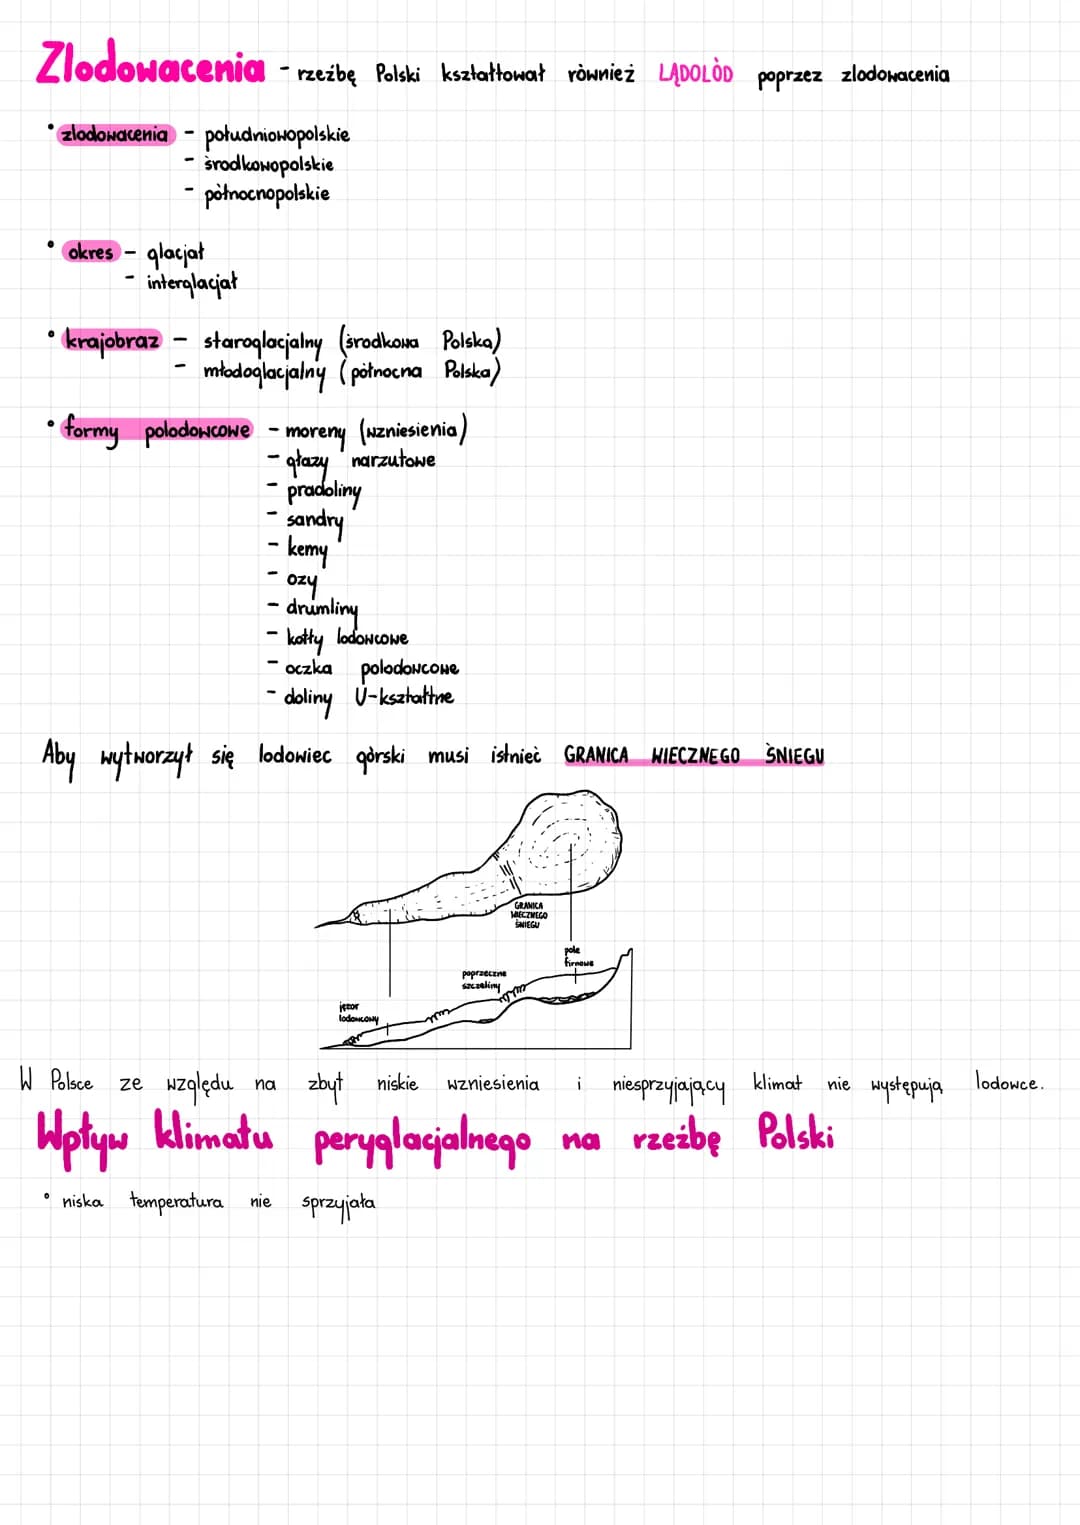 Zlodowacenia - rzeźbę Polski kształtował również LĄDOLÓD poprzez zlodowacenia
• zlodowacenia - południowopolskie
- środkowopolskie
- północnopolskie
• okres - glacjał
- interglacjał
• krajobraz - staroglacjalny (środkowa Polska)
- młodoglacjalny (północna Polska)
• formy polodowcowe - moreny (wzniesienia)
- głazy narzutowe
- pradoliny
- sandry
- kemy
- ozy
- drumliny
- kotły lodowcowe
- oczka polodowcowe
- doliny U-kształtne
Aby wytworzył się lodowiec górski musi istnieć GRANICA WIECZNEGO ŚNIEGU
GRANICA
WIECZNEGO
ŚNIEGU
pole
firnowe
poprzeczne
szczeliny
jęzor
lodowcowy
W Polsce ze względu na zbyt niskie wzniesienia i niesprzyjający klimat nie występują lodowce.
Wpływ klimatu peryglacjalnego na rzeźbę Polski
• niska temperatura nie sprzyjała